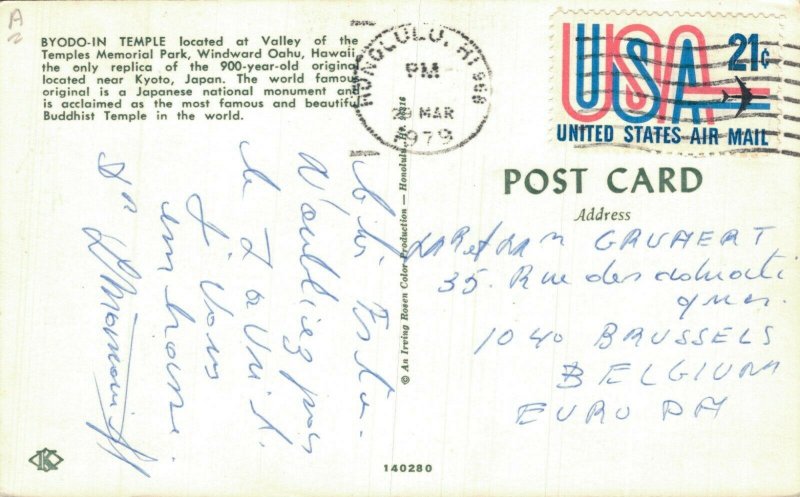 BYODO-IN TEMPLE located at Valley of the
Temples Memorial Park, Windward Oahu, Hawaii,
the only replica of the 900-year-old original
located near Kyoto, Japan. The world famous
original is a Japanese national monument and
is acclaimed as the most famous and beautiful
Buddhist Temple in the world.
HONOLULU, HI 968
PM
29 MAR
1979
USA 21¢
UNITED STATES AIR MAIL
POST CARD
Address
GRUMERT
35. Rue des
1040 BRUSSELS
BELGIUM
EUROPA
N'oubliez pas
le
Je vous
embrasse.
Dr
© An Irving Rosen Color Production — Honolulu,
K
140280
A